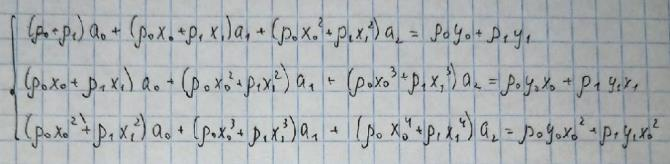 (ρ₀+ρ₁) a₀ + (ρ₀x₀+ρ₁x₁)a₁ + (ρ₀x₀²+ρ₁x₁²)a₂ = ρ₀y₀+ρ₁y₁
(ρ₀x₀+ρ₁x₁) a₀ + (ρ₀x₀²+ρ₁x₁²) a₁ + (ρ₀x₀³+ρ₁x₁³)a₂ = ρ₀y₀x₀ + ρ₁y₁x₁
(ρ₀x₀²+ρ₁x₁²)a₀ + (ρ₀x₀³+ρ₁x₁³)a₁ + (ρ₀x₀⁴+ρ₁x₁⁴)a₂ = ρ₀y₀x₀²+ρ₁y₁x₀²